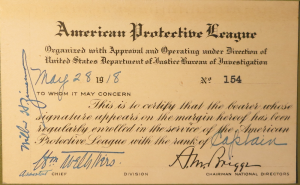 American Protective League
Organized with Approval and Operating under Direction of
United States Department of Justice Bureau of Investigation
May 28 1918
No 154
TO WHOM IT MAY CONCERN
This is to certify that the bearer whose
signature appears on the margin hereof has been
regularly enrolled in the service of the American
Protective League with the rank of Captain
A M Briggs
Assistant CHIEF
DIVISION
CHAIRMAN NATIONAL DIRECTORS